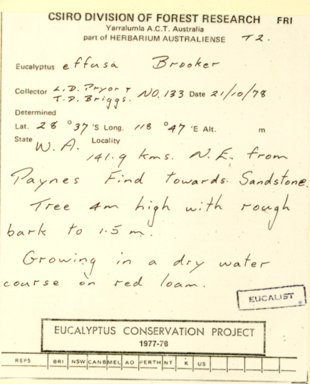 CSIRO DIVISION OF FOREST RESEARCH FRI
Yarralumla A.C.T. Australia
part of HERBARIUM AUSTRALIENSE T2.
Eucalyptus effusa Brooker
Collector L.D. Pryor & J.D. Briggs. NO. 133 Date 21/10/78
Determined
Lat. 28 ° 37 'S Long. 118 ° 47 'E Alt. m
State W.A. Locality
141.9 kms. N.E. from
Paynes Find towards Sandstone.
Tree 4m high with rough
bark to 1.5 m.
Growing in a dry water
course on red loam.
EUCALIST
EUCALYPTUS CONSERVATION PROJECT
1977-78
REFS BRI NSW CANB MEL AD PERTH NT K US